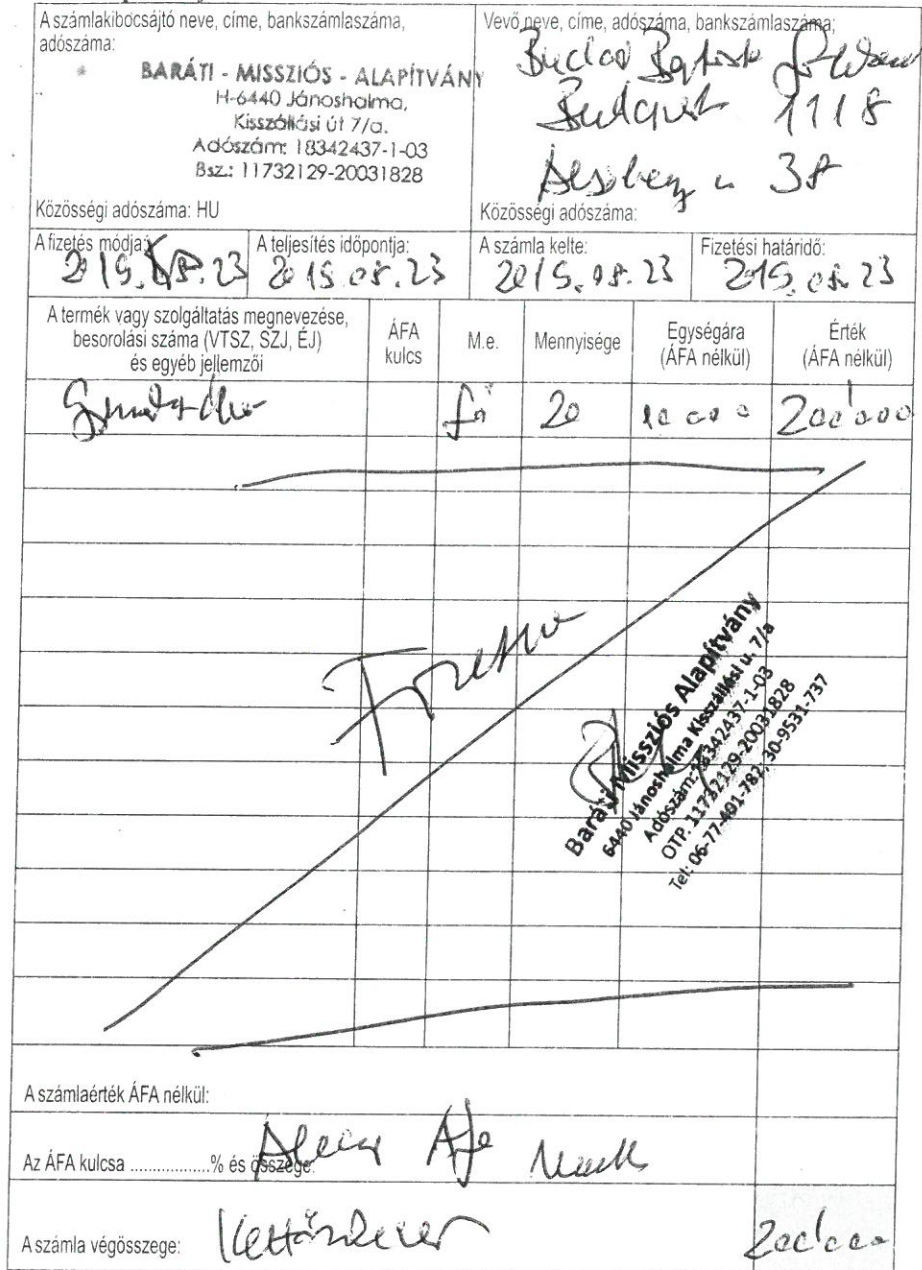 A számlakibocsájtó neve, címe, bankszámlaszáma,
adószáma:
BARÁTI - MISSZIÓS - ALAPÍTVÁNY
H-6440 Jánoshalma,
Kisszállási út 7/a.
Adószám: 18342437-1-03
Bsz.: 11732129-20031828
Közösségi adószáma: HU
Vevő neve, címe, adószáma, bankszámlaszáma;
Budai Baptista
Budapest 1118
u 38
Közösségi adószáma:
A fizetés módja:
2015.08.23
A teljesítés időpontja:
2015.08.23
A számla kelte:
2015.08.23
Fizetési határidő:
2015.08.23
A termék vagy szolgáltatás megnevezése,
besorolási száma (VTSZ, SZJ, ÉJ)
és egyéb jellemzői
ÁFA
kulcs
M.e.
Mennyisége
Egységára
(ÁFA nélkül)
Érték
(ÁFA nélkül)
fő 20 10000 200'000
Fizetve
Baráti Missziós Alapítvány
6440 Jánoshalma Kisszállási u. 7/a
Adószám: 18342437-1-03
OTP. 11732129-20031828
Tel: 06-77-401-782; 30-9531-737
A számlaérték ÁFA nélkül:
Az ÁFA kulcsa ..................% és összege:
Alanyi Áfa
A számla végösszege: Kettőszázezer 200'000